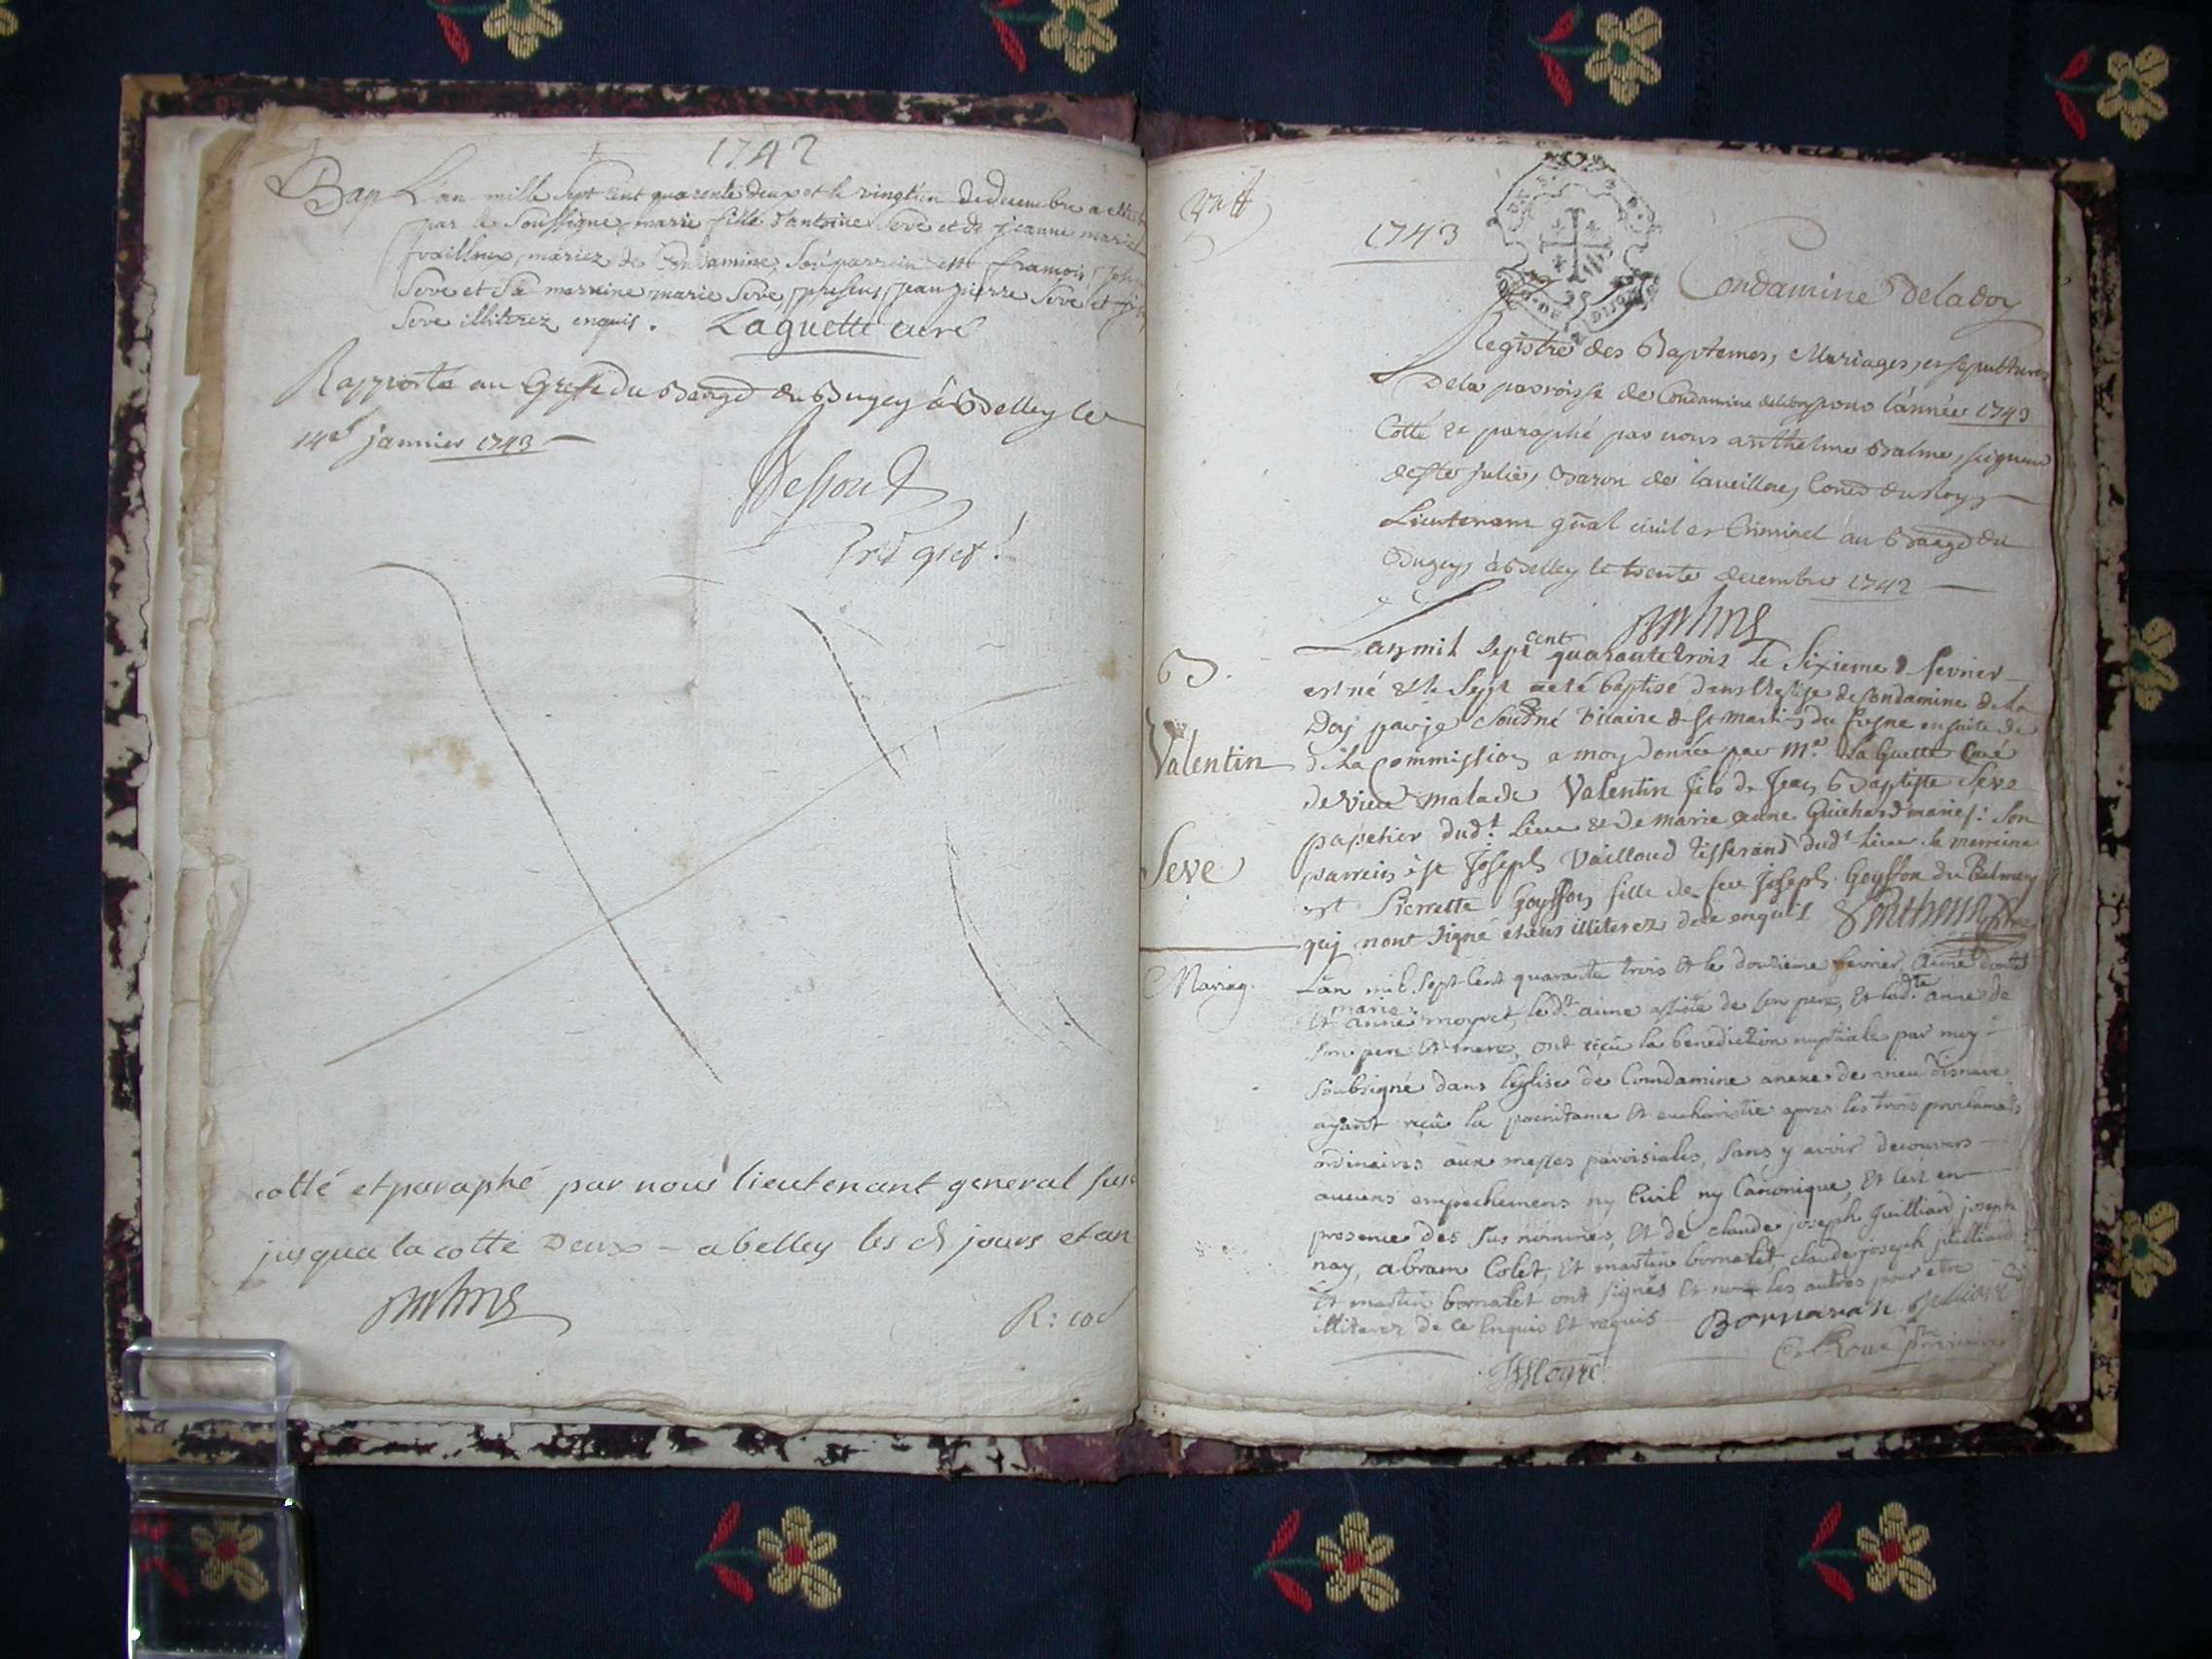 1742
Bap L'an mille sept cent quarente deux et le vingtieu de decembre a eté
par le soussigné marie fille d'antoine Seve et de jeanne marie
vailloux mariez de Condamine, son parrein est francois joseph
Seve et sa marreine marie Seve, presens jean pierre Seve et
Seve illiterez enquis. Laguette curé
Rapporté au Greffe du Baage du Bugey à Belley le
14e janvier 1743
cotté et paraphé par nous lieutenant general sus
jusqua la cotte Deux - a belley les d jours et an
1743
Condamine de la doy
Registre des Baptemes, Mariages, et sepultures
De la parroisse de Condamine deladoy pour l'année 1743
Cotté et paraphé par nous anthelme Balme, seigneur
de ste julie, Baron de laveilloz, Coner du Roy
Lieutenant gñal civil et Criminel au Baage du
Bugey, à Belley le trente decembre 1742
B.
Valentin
Seve
L'an mil sept cent quarante trois le sixieme d fevrier
est né & le sept a eté baptisé dans l'Eglise de Condamine de La
Doy par je sousné vicaire de St martin du fresne en suite de
de la commission a moy donnée par Mre La Guette Curé
de vieu malade Valentin fils de Jean Baptiste Seve
papetier dudt lieu & de marie anne Guichard mariés: son
parrein est Joseph Vailloud tisserand dudt Lieu la marreine
est Pierrette Goyffon fille de feu Joseph Goyffon du Balmay
qui n'ont signé étant illiterez de ce enquis
Mariag.
L'an mil sept cent quarante trois et le douzieme fevrier, aimé
et marie anne moyret, ledt aimé assisté de son pere, et ladte anne de
son pere et mere, ont reçu la benediction nuptiale par moy
soubsigné dans l'église de Condamine anexe de vieu d'isnave
ayant reçu la pœnitance et eucharistie apres les trois proclamats
ordinaires aux messes paroisiales, sans y avoir decouvers
aucuns empechemens ny Civil ny Canonique, et cest en
presence des sus nommés, et de claude joseph juilliard joseph
nay, abram Colet, et martin bornatet, claude joseph juilliard
et martin bornatet ont signés et non les autres pour etre
illiterez de ce enquis et requis